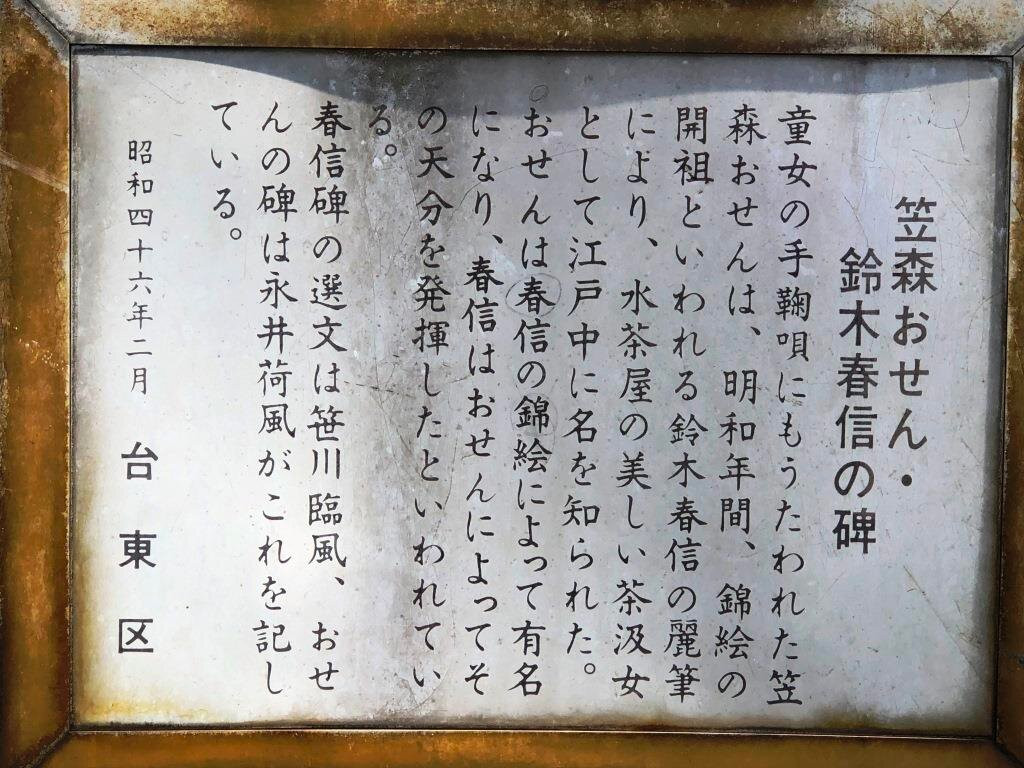 笠森おせん・
鈴木春信の碑
童女の手鞠唄にもうたわれた笠
森おせんは、明和年間、錦絵の
開祖といわれる鈴木春信の麗筆
により、水茶屋の美しい茶汲女
として江戸中に名を知られた。
おせんは春信の錦絵によって有名
になり、春信はおせんによってそ
の天分を発揮したといわれてい
る。
春信碑の選文は笹川臨風、おせ
んの碑は永井荷風がこれを記し
ている。
昭和四十六年二月 台東区